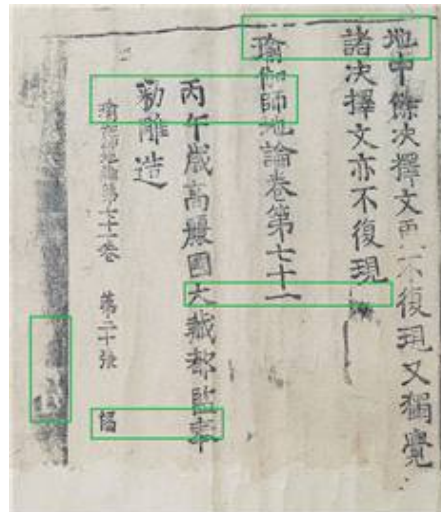 地中餘決擇文再不復現又獨覺
諸決擇文亦不復現
瑜伽師地論卷第七十一
丙午歲高麗國大藏都監奉
勅雕造
瑜伽師地論第七十一卷 第二十張